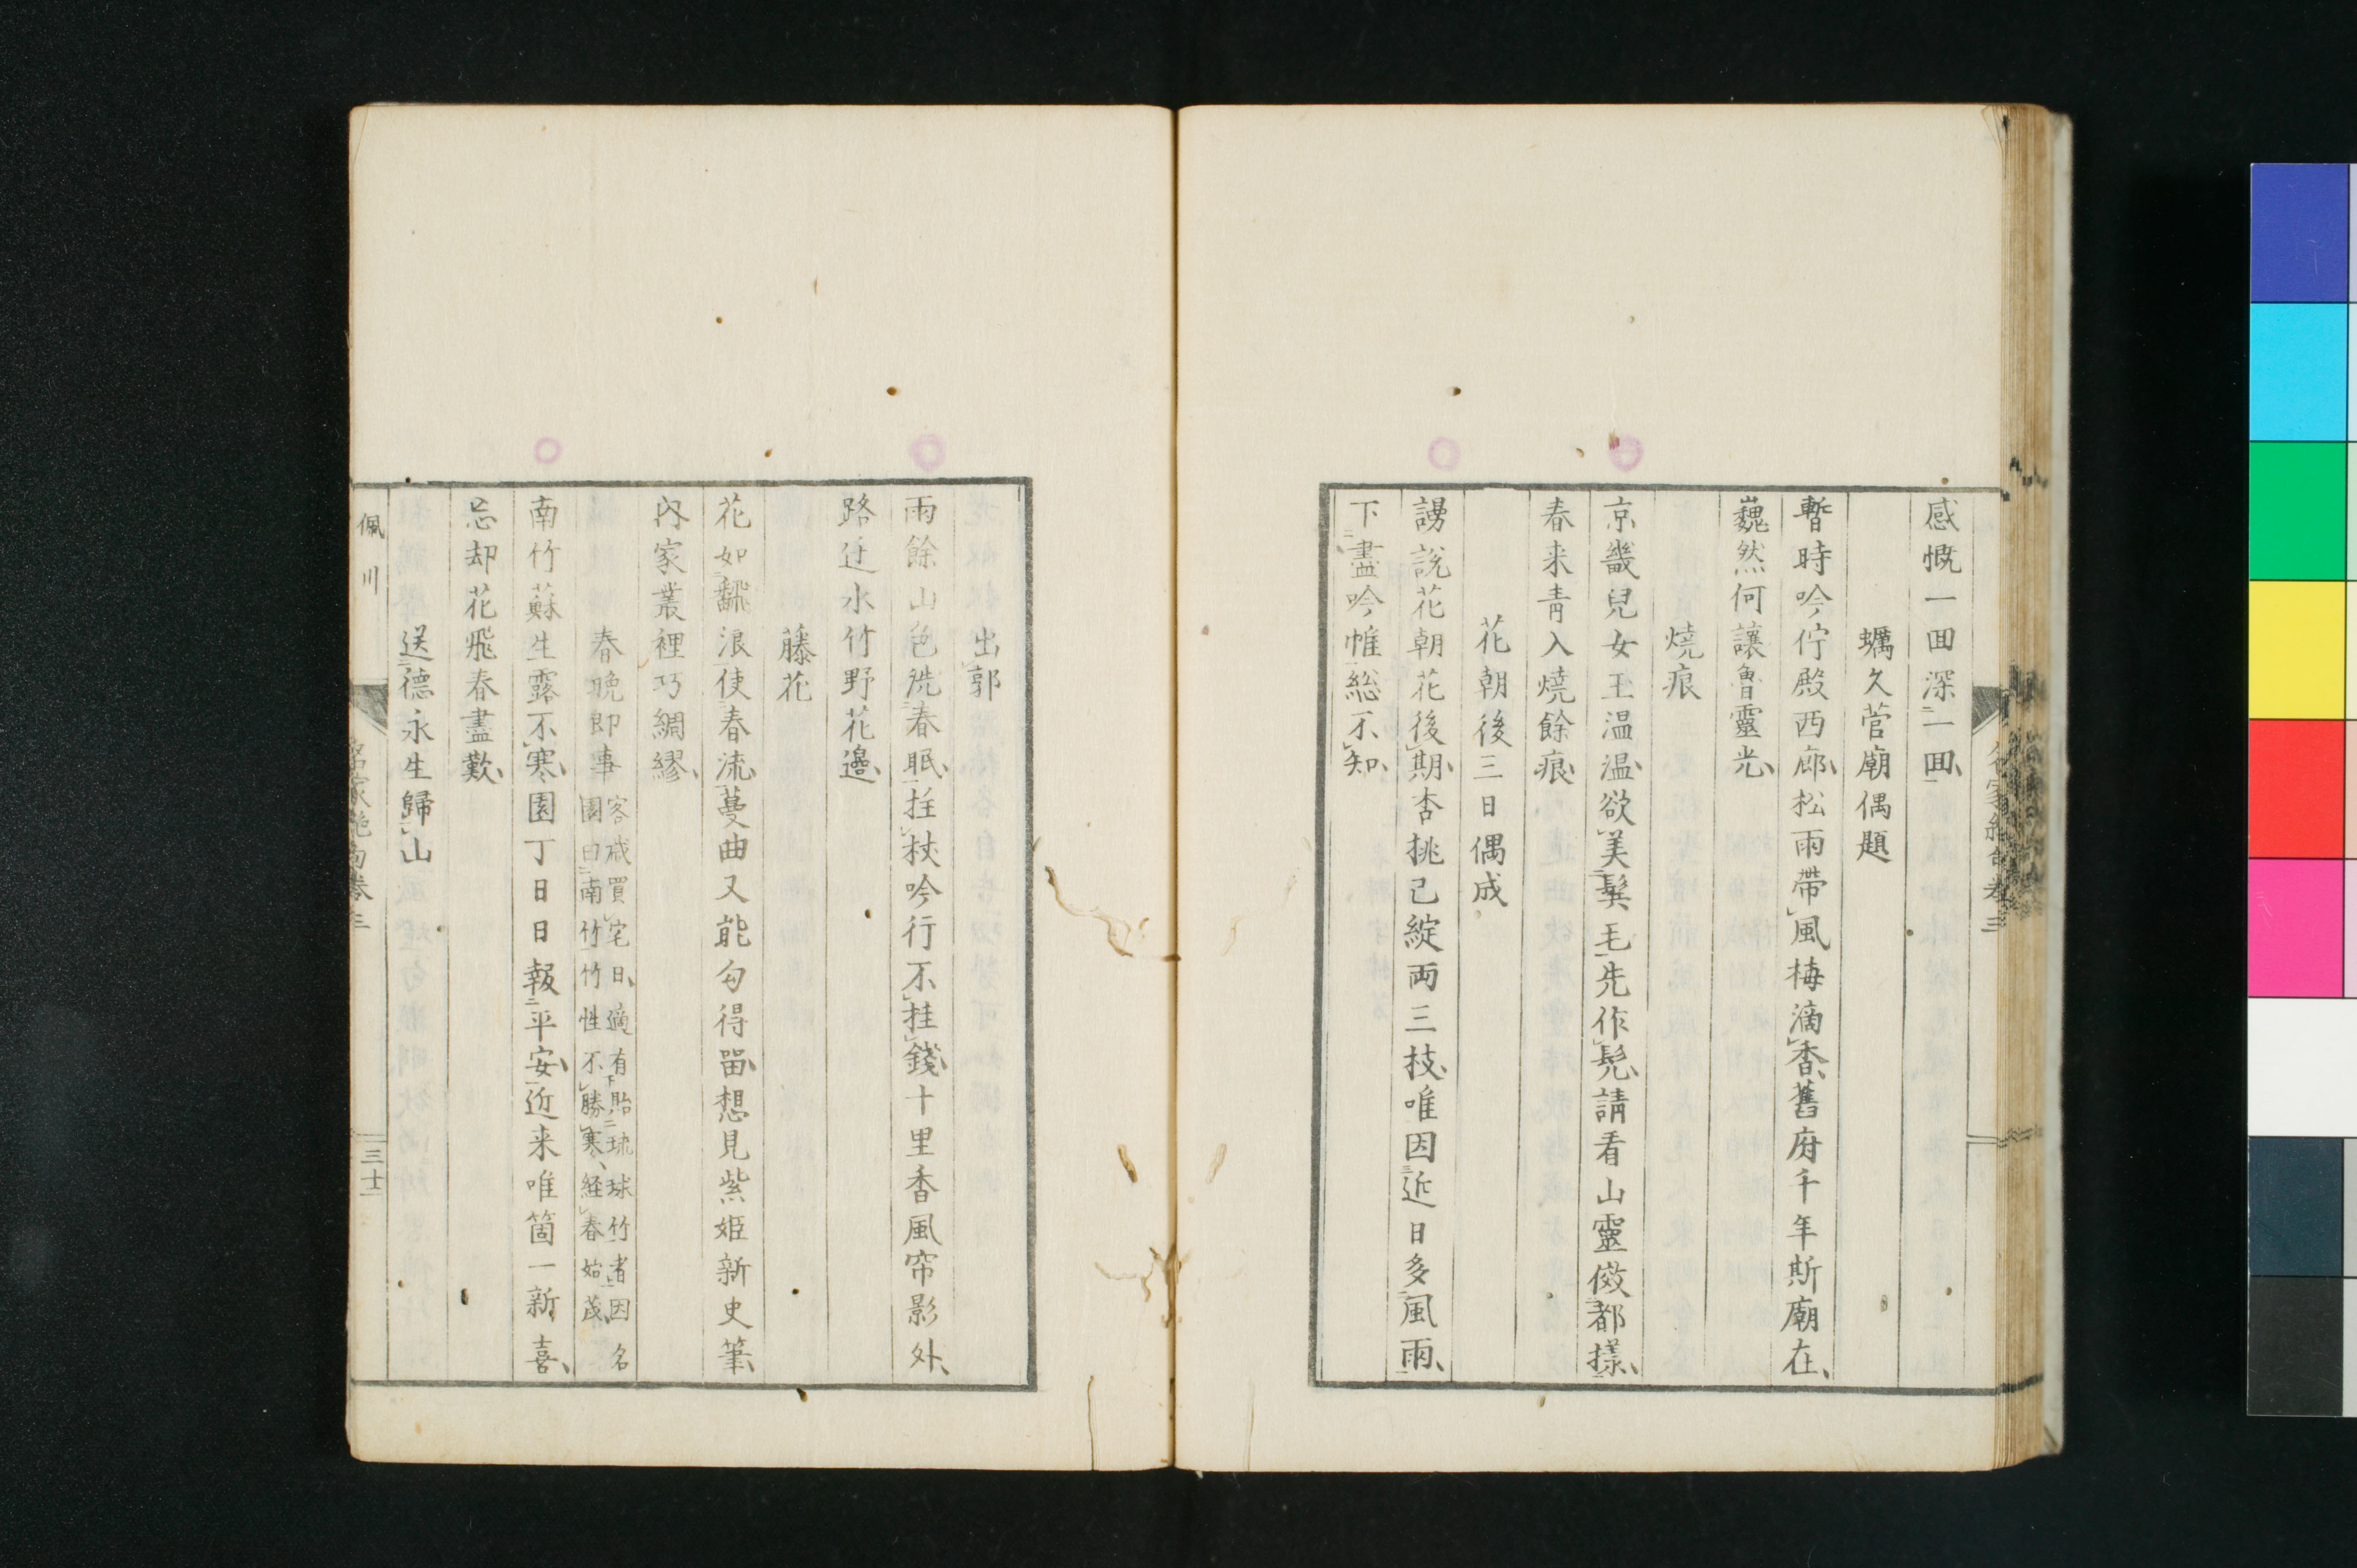 感慨一回深一回
蠣久菅廟偶題
暫時吟佇殿西廊松雨帶風梅滴香舊府千年斯廟在
巍然何讓魯靈光
燒痕
京畿兒女王温温欲美鬓毛先作髡請看山靈傚都様
春来青入燒餘痕
花朝後三日偶成
謾說花朝花後期杏桃已綻両三枝唯因近日多風雨
下盡吟帷総不知
出郭
雨餘山色洗春眠拄杖吟行不挂錢十里香風帘影外
路迂水竹野花邊
藤花
花如飜浪使春流蔓曲又能勾得畱想見紫姬新史筆
内家叢裡巧綢繆
春晩即事
客歲買宅日適有貽琉球竹者因名
園曰南竹竹性不勝寒経春始茂
南竹蘇生露不寒園丁日日報平安近来唯箇一新喜
忘却花飛春盡歎
送德永生歸山
佩川
名家絶句卷三
三十一